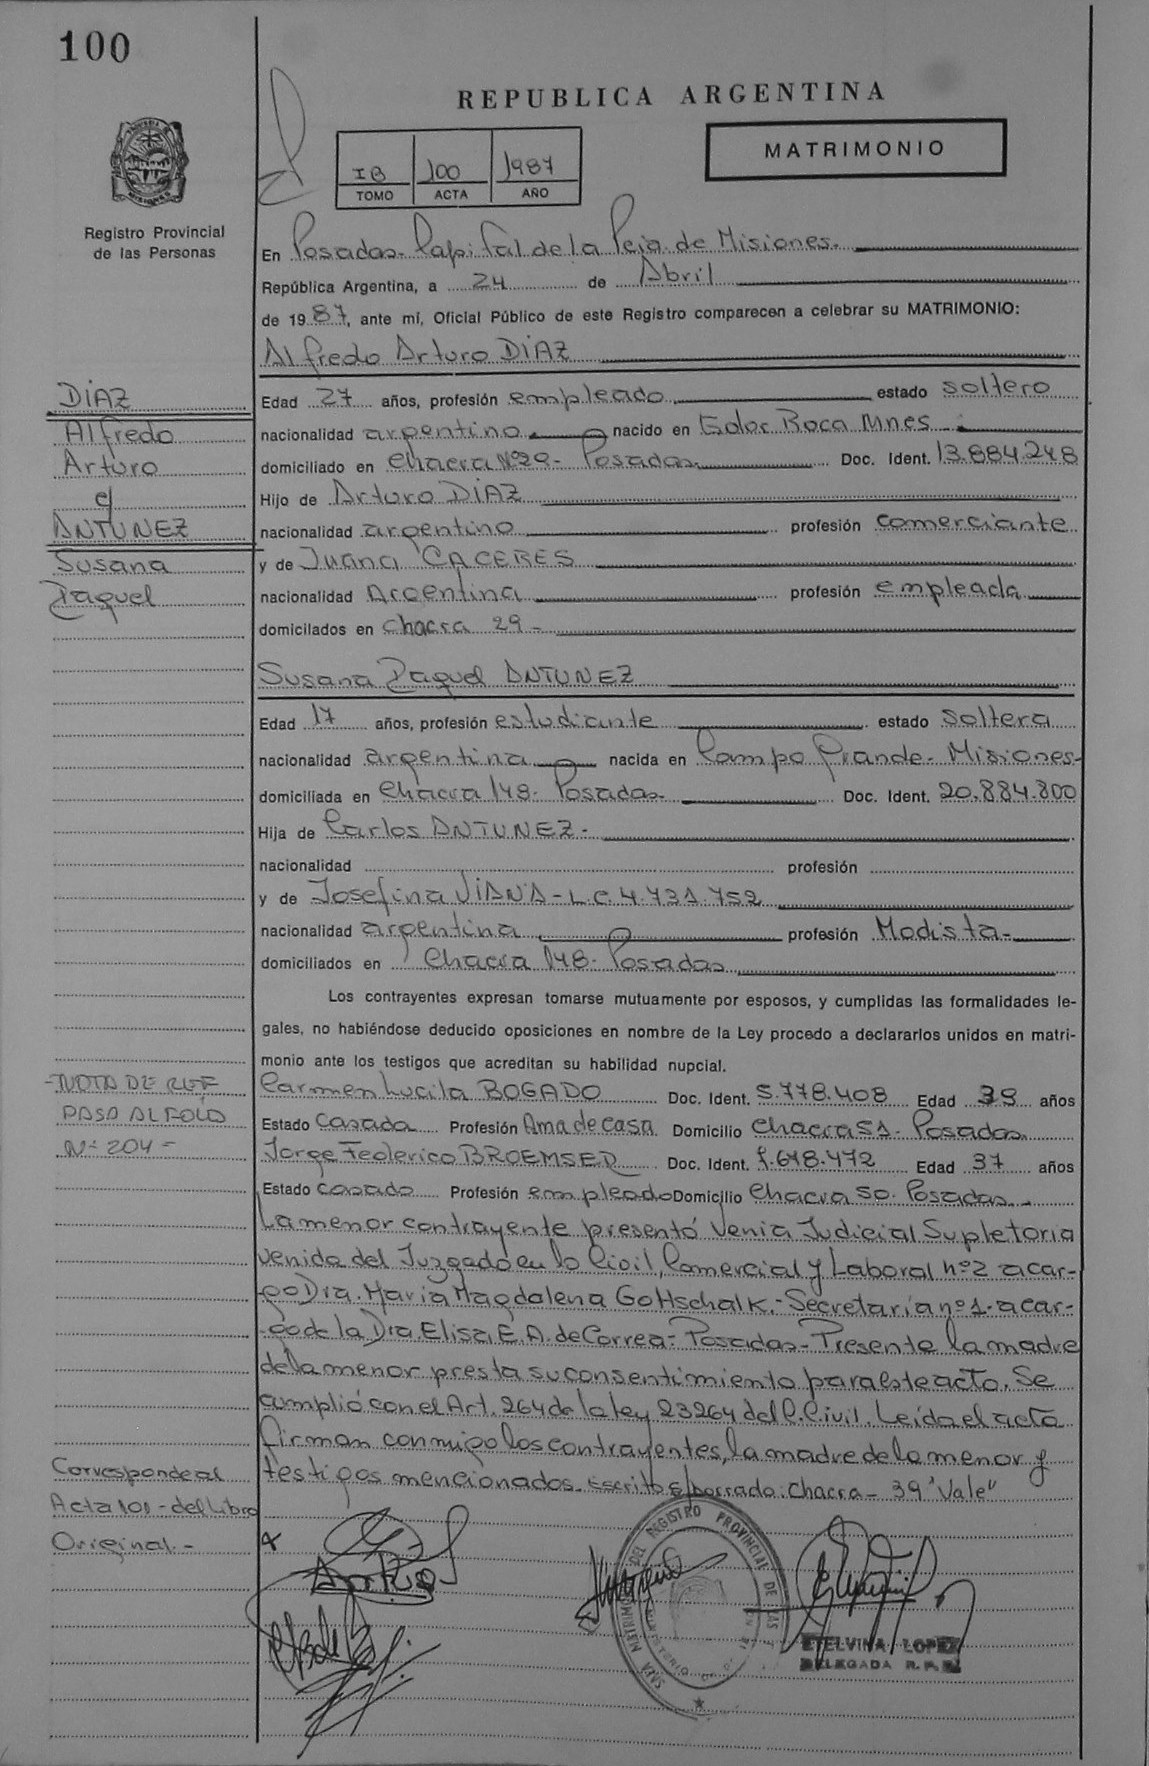 100
REPUBLICA ARGENTINA
MATRIMONIO
IB 100 1987
TOMO ACTA AÑO
Registro Provincial
de las Personas
En Posadas- Capital de la Pcia. de Misiones.
República Argentina, a 24 de Abril
de 1987, ante mí, Oficial Público de este Registro comparecen a celebrar su MATRIMONIO:
Alfredo Arturo DIAZ
DIAZ
Alfredo
Arturo
c/
ANTUNEZ
Susana
Raquel
Edad 27 años, profesión empleado estado soltero
nacionalidad argentino nacido en Gdor Roca Mnes
domiciliado en Chacra Nº29- Posadas Doc. Ident. 13.884.248
Hijo de Arturo DIAZ
nacionalidad argentino profesión comerciante
y de Juana CACERES
nacionalidad Argentina profesión empleada
domicilados en chacra 29-
Susana Raquel ANTUNEZ
Edad 17 años, profesión estudiante estado soltera
nacionalidad argentina nacida en Campo Grande- Misiones-
domiciliada en Chacra 148- Posadas- Doc. Ident. 20.884.800
Hija de Carlos ANTUNEZ-
nacionalidad profesión
y de Josefina VIANA-L.C. 4.731.752
nacionalidad argentina profesión Modista-
domiciliados en Chacra 148- Posadas
Los contrayentes expresan tomarse mutuamente por esposos, y cumplidas las formalidades le-
gales, no habiéndose deducido oposiciones en nombre de la Ley procedo a declararlos unidos en matri-
monio ante los testigos que acreditan su habilidad nupcial.
-NOTA DE REF
PASA AL FOLIO
Nº 204-
Carmen Lucila BOGADO Doc. Ident. 5.778.408 Edad 39 años
Estado Casada Profesión Ama de casa Domicilio Chacra 51- Posadas
Jorge Federico BROEMSER Doc. Ident. 7.648.472 Edad 37 años
Estado casado Profesión empleado Domicilio Chacra 50- Posadas-
La menor contrayente presentó Venia Judicial Supletoria
venida del Juzgado en lo Civil, Comercial y Laboral nº2 a car-
go Dra. María Magdalena Gottschalk.-Secretaría nº1-a car-
go de la Dra Elisa E.A. de Correa- Posadas- Presente la madre
de la menor presta su consentimiento para este acto. Se
cumplió con el Art. 264 de la ley 23264 del C. Civil. Leída el acta
firman conmigo los contrayentes, la madre de la menor y
testigos mencionados. Escrito s/borrado: chacra- 39 "Vale"
Corresponde al
Acta 101-del Libro
Original.-
DEL REGISTRO PROVINCIAL DE LAS
ETELVINA LOPEZ
DELEGADA R. P.